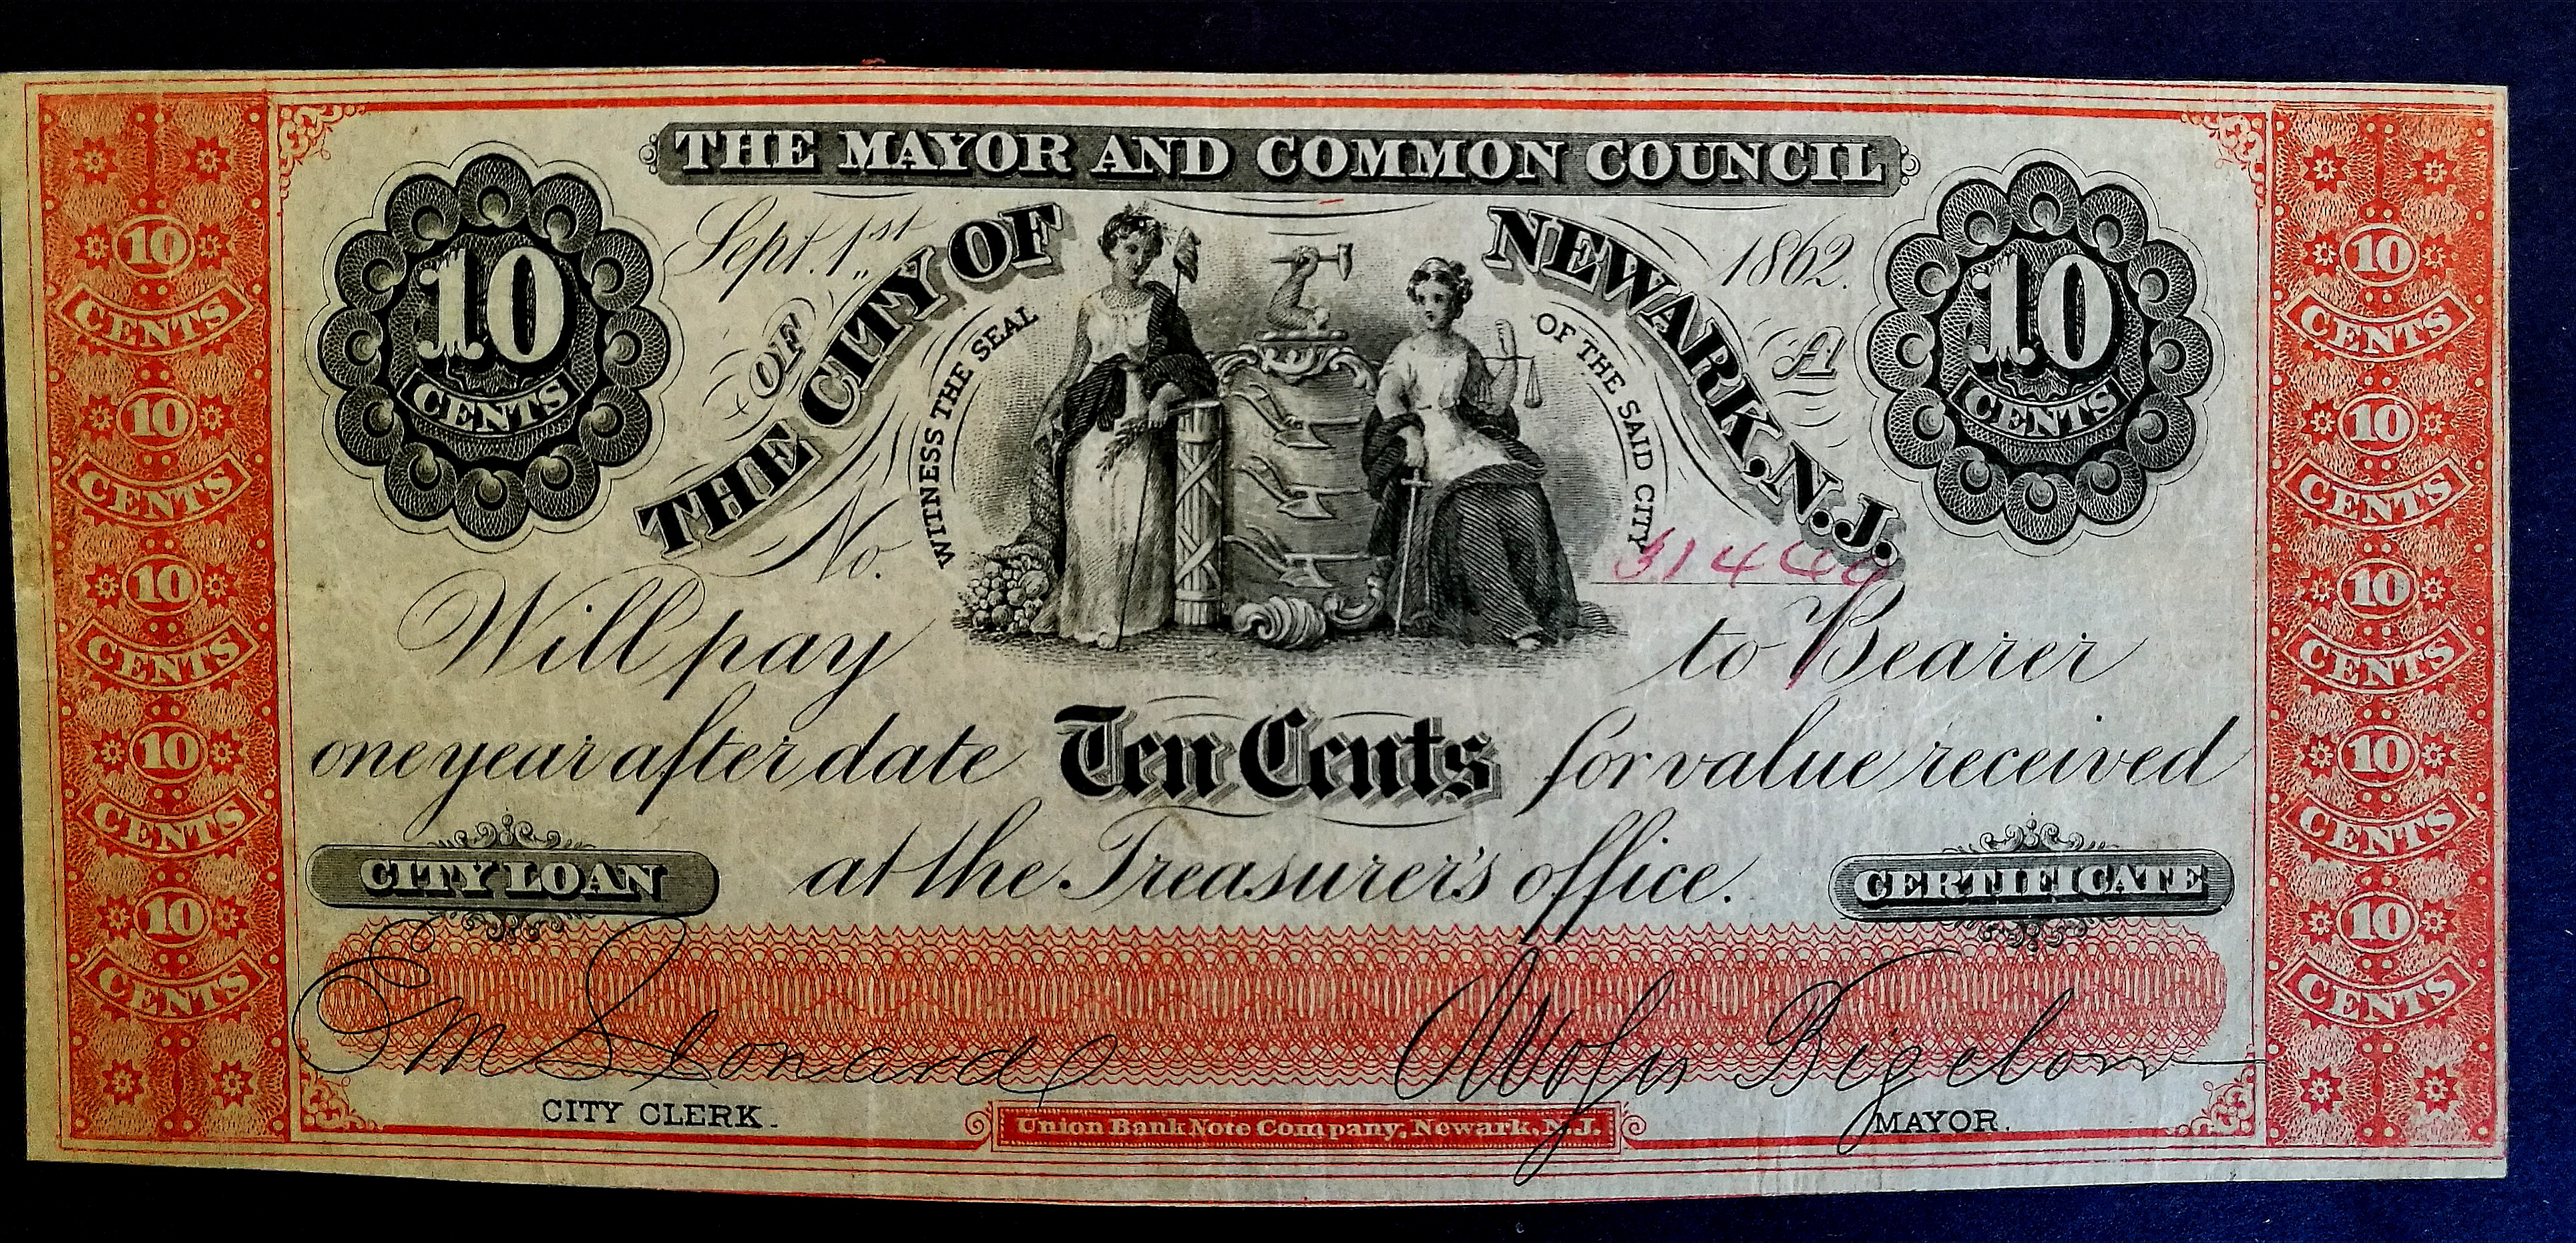 THE MAYOR AND COMMON COUNCIL
Sept. 1st 1862.
OF
THE CITY OF NEWARK, N.J.
10
CENTS
10
CENTS
WITNESS THE SEAL
OF THE SAID CITY
A1
No.
Will pay to Bearer
one year after date Ten Cents for value received
at the Treasurer's office.
CITY LOAN
CERTIFICATE
E M Leonard
Moses Bigelow
CITY CLERK.
MAYOR.
Union Bank Note Company, Newark, N.J.
10
CENTS
10
CENTS
10
CENTS
10
CENTS
10
CENTS
10
CENTS
10
CENTS
10
CENTS
10
CENTS
10
CENTS